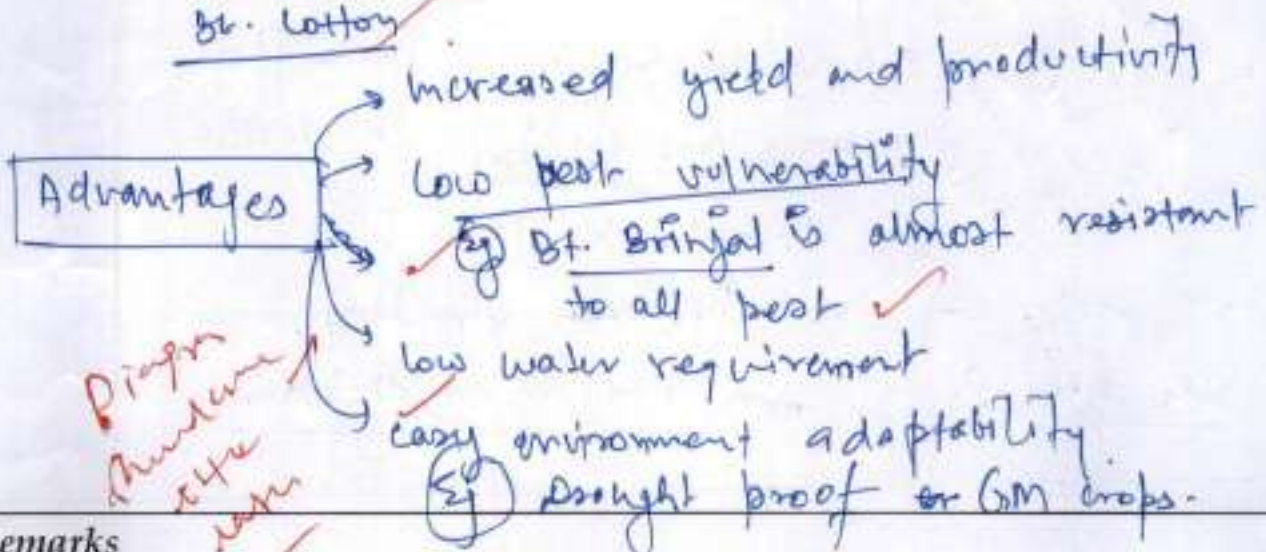 Bt. Cotton
Increased yield and productivity
Advantages
Low pest vulnerability
Eg Bt. Brinjal is almost resistant
to all pest
low water requirement
easy environment adaptability
Eg Drought proof or GM crops.
emarks